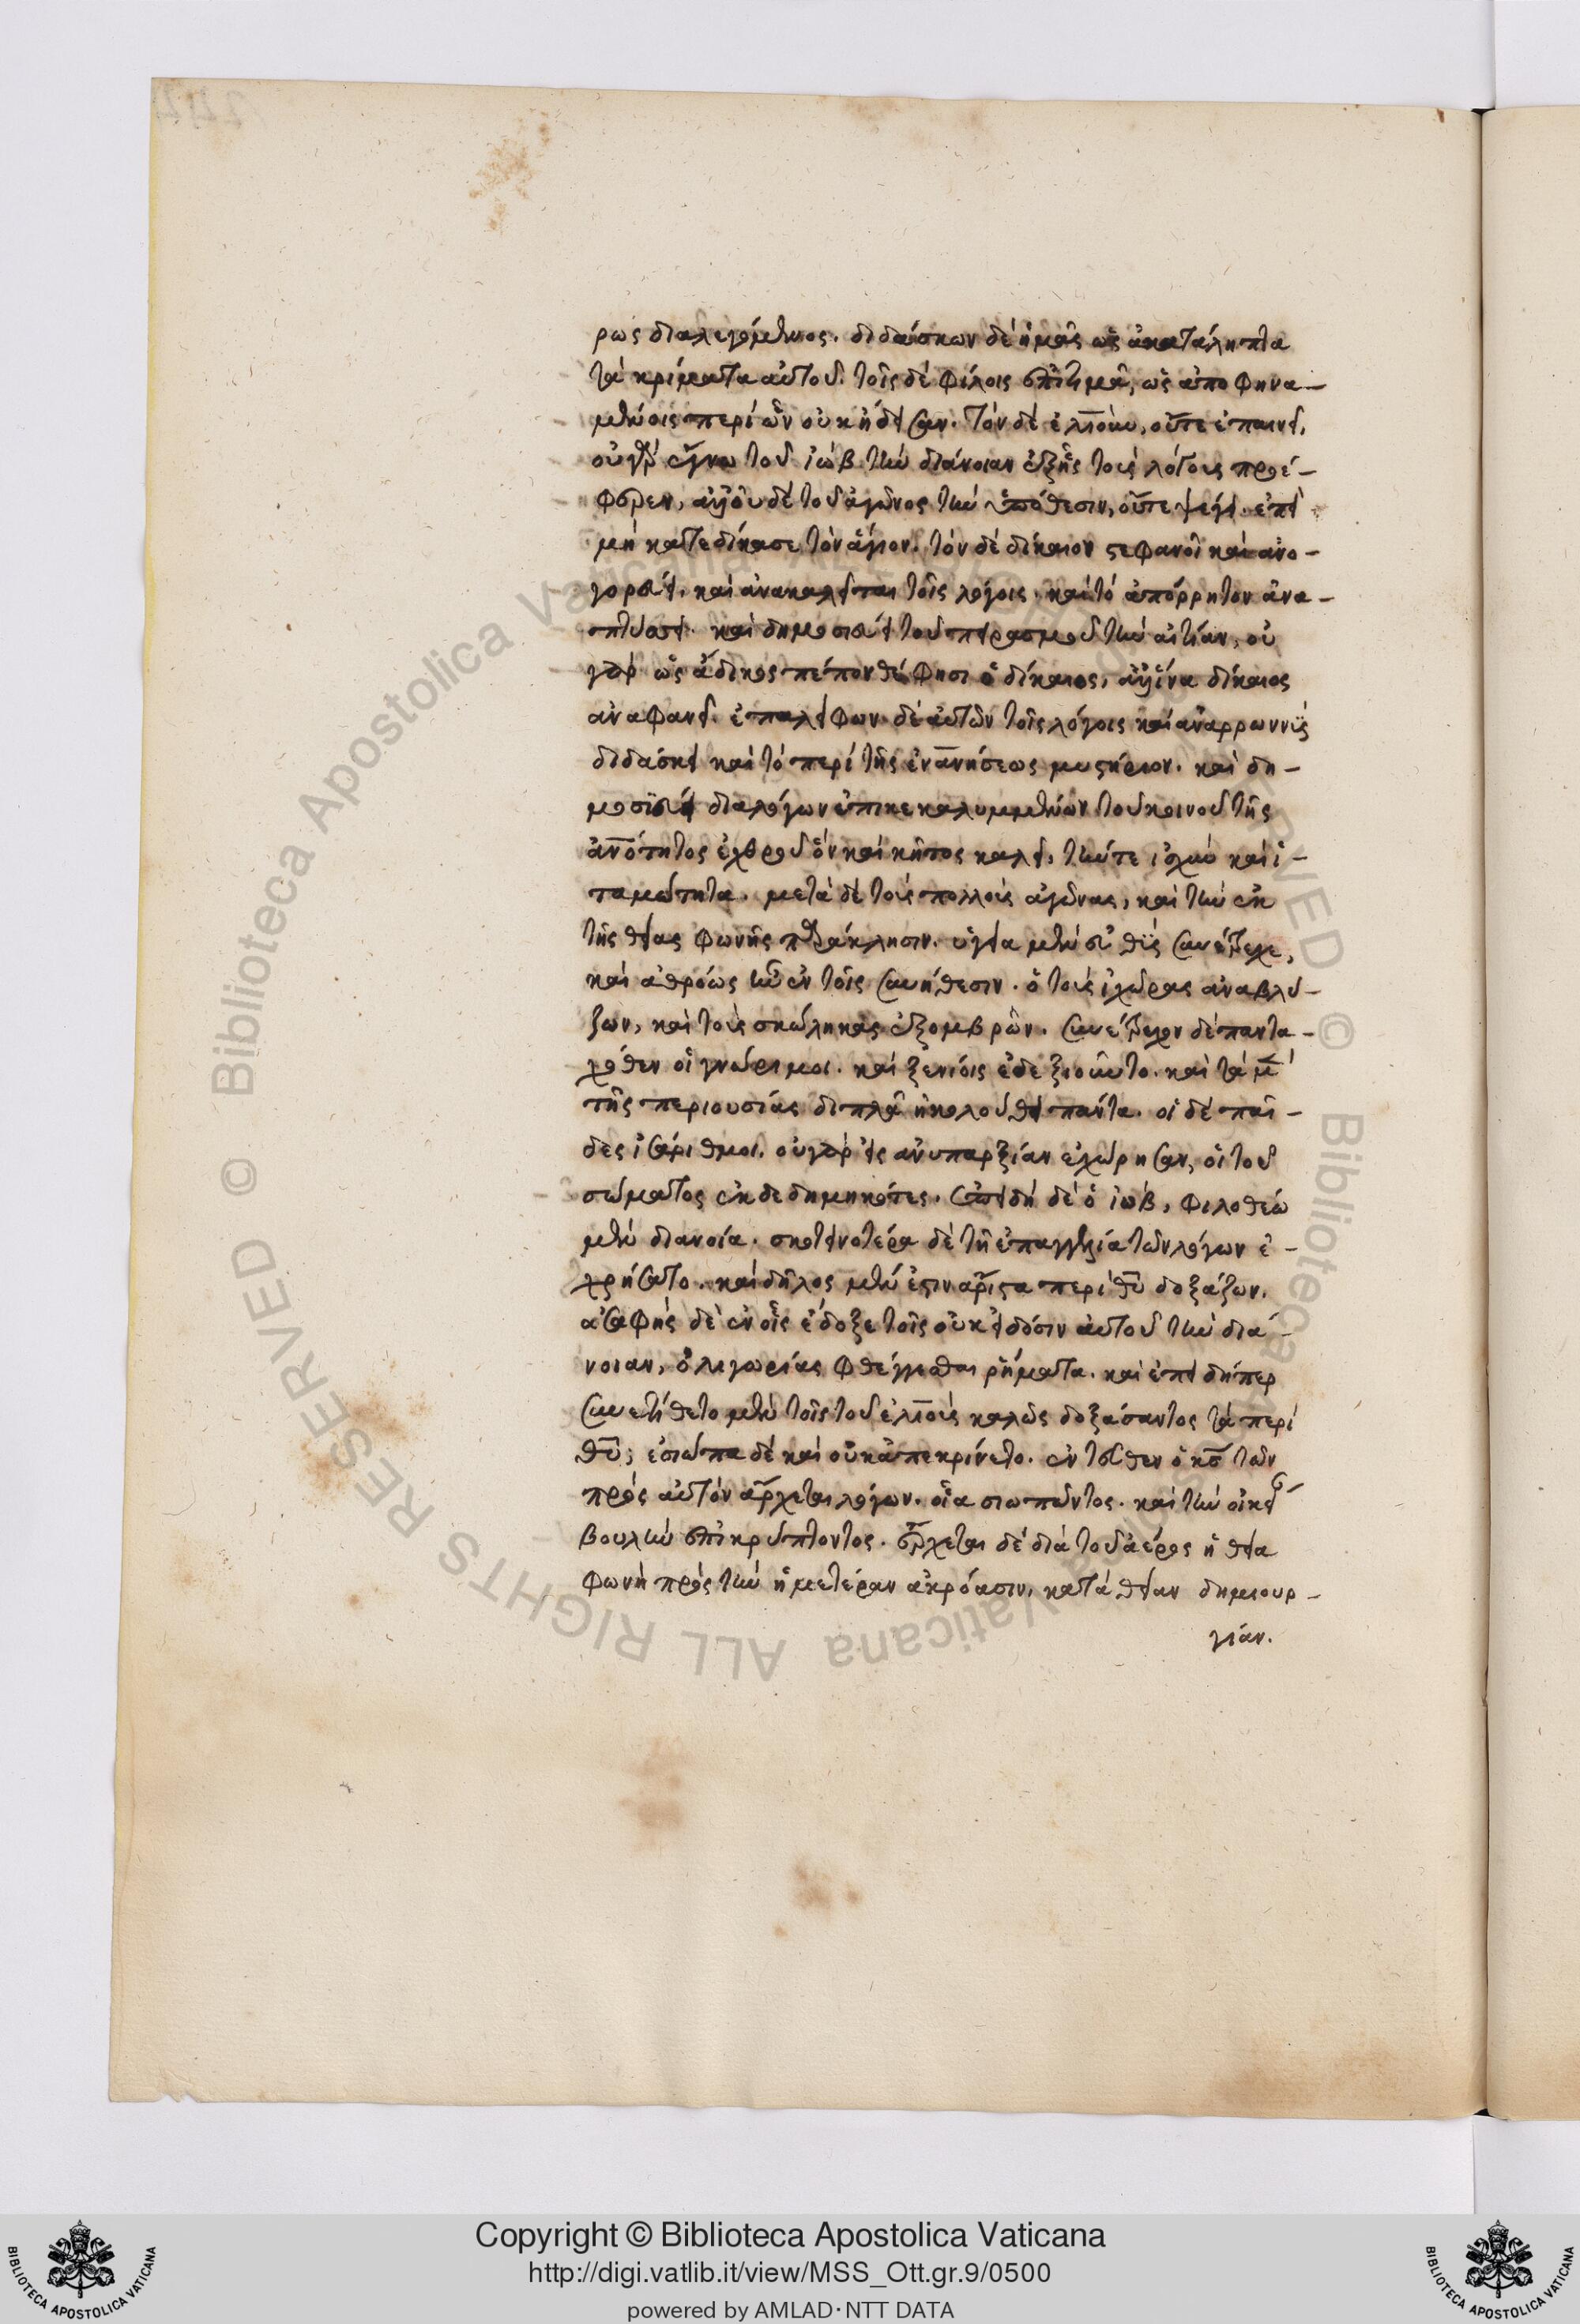 ρως διαλεγόμενος. διδάσκων δὲ ἡμᾶς ὡς ἀκατάληπτα
τὰ κρίματα αὐτοῦ. τοῖς δὲ φίλοις ἐπιτιμᾶ, ὡς ἀποφηνα-
μένοις περὶ ὧν οὐκ ἤδεισαν. τὸν δὲ ἐλιοὺν, οὔτε ἐπαινεῖ,
οὐ γὰρ ἔγνω τοῦ ἰὼβ τὴν διάνοιαν ἐξ ἧς τοὺς λόγους προέ-
φερεν, ἀλλ' οὐδὲ τοῦ ἀγῶνος τὴν ὑπόθεσιν, οὔτε ψέγει. ἐπεὶ
μὴ κατεδίκασε τὸν ἅγιον. τὸν δὲ δίκαιον στεφανοῖ καὶ ἀνα-
γορεύει. καὶ ἀνακαλεῖται τοῖς λόγοις. καὶ τὸ ἀπόρρητον ἀνα-
πτύσσει. καὶ δημοσιεύει τοῦ πειρασμοῦ τὴν αἰτίαν, οὐ
γὰρ ὡς ἄδικος πέπονθέ φησι ὁ δίκαιος, ἀλλ' ἵνα δίκαιος
ἀναφανεῖ. ἐπαλείφων δὲ αὐτὸν τοῖς λόγοις καὶ ἀναρρωννὺς
διδάσκει καὶ τὸ περὶ τῆς ἐνανήσεως μυστήριον. καὶ δη-
μοσιεύει διαλόγων ἐπικεκαλυμμένων τοῦ κοινοῦ τῆς
ἀνότητος ἐχθροῦ ὃν καὶ κῆτος καλεῖ, τήν τε ἰσχὺν καὶ ἰ-
ταμότητα. μετὰ δὲ τοὺς πολλοὺς ἀγῶνας, καὶ τὴν ἐκ
τῆς θείας φωνῆς παράκλησιν. ὑγεία μὲν εὐθὺς συνέτρεχε,
καὶ ἀθρόως ἦν ἐν τοῖς συνήθεσιν. ὁ τοὺς ἰχώρας ἀναβλύ-
ζων, καὶ τοὺς σκώληκας ἐξομβρῶν. συνέτρεχον δὲ παντα-
χόθεν οἱ γνώριμοι. καὶ ξενίοις ἐδεξιοῦντο. καὶ τὰ μὲν
τῆς περιουσίας διπλᾶ ἠκολούθει πάντα. οἱ δὲ παῖ-
δες ἰσάριθμοι. οὐ γὰρ εἰς ἀνυπαρξίαν ἐχώρησαν, οἱ τοῦ
σώματος ἐκδεδημηκότες. ἐπειδὴ δὲ ὁ ἰὼβ, φιλοθέω
μὲν διανοία. σκοτεινοτέρα δὲ τῆ ἐπαγγελία τῶν λόγων ἐ-
χρήσατο. καὶ δῆλος μὲν ἐστιν ἄριστα περὶ θῦ δοξάζων.
ἀσαφὴς δὲ ἐν οἷς ἔδοξε τοῖς οὐκ εἰδόσιν αὐτοῦ τὴν διά-
νοιαν, ὀλιγωρίας φθέγγεσθαι ῥήματα. καὶ ἐπειδήπερ
συνετίθετο μὲν τοῖς τοῦ ἐλιοὺς καλῶς δοξάσαντος τὰ περὶ
θῦ; ἐσιώπα δὲ καὶ οὐκ ἀπεκρίνετο. ἐντεῦθεν ὁ κς τῶν
πρὸς αὐτὸν ἄρχεται λόγων. οἷα σιωπῶντος. καὶ τὴν οἰκεί
βουλὴν ἐπικρύπτοντος. ἔρχεται δὲ διὰ τοῦ ἀέρος ἡ θεία
φωνὴ πρὸς τὴν ἡμετέραν ἀκρόασιν, κατὰ θείαν δημιουρ-
γίαν.
Copyright © Biblioteca Apostolica Vaticana
http://digi.vatlib.it/view/MSS_Ott.gr.9/0500
powered by AMLAD·NTT DATA